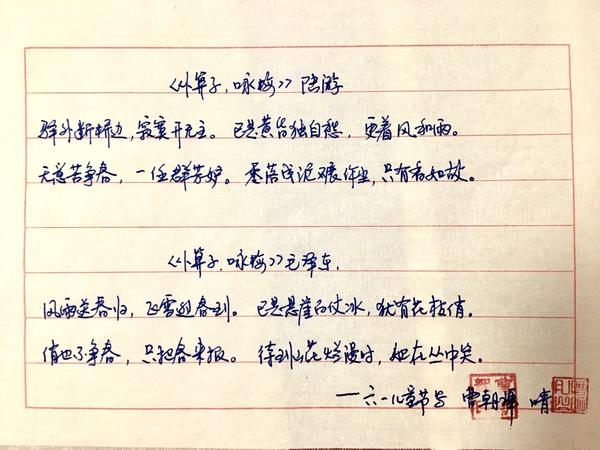 《卜算子，咏梅》陆游
驿外断桥边，寂寞开无主。已是黄昏独自愁，更着风和雨。
无意苦争春，一任群芳妒。零落成泥碾作尘，只有香如故。
《卜算子，咏梅》毛泽东，
风雨送春归，飞雪迎春到。已是悬崖百仗冰，犹有花枝俏。
俏也不争春，只把春来报。待到山花烂漫时，她在丛中笑。
—六一儿童节 晴